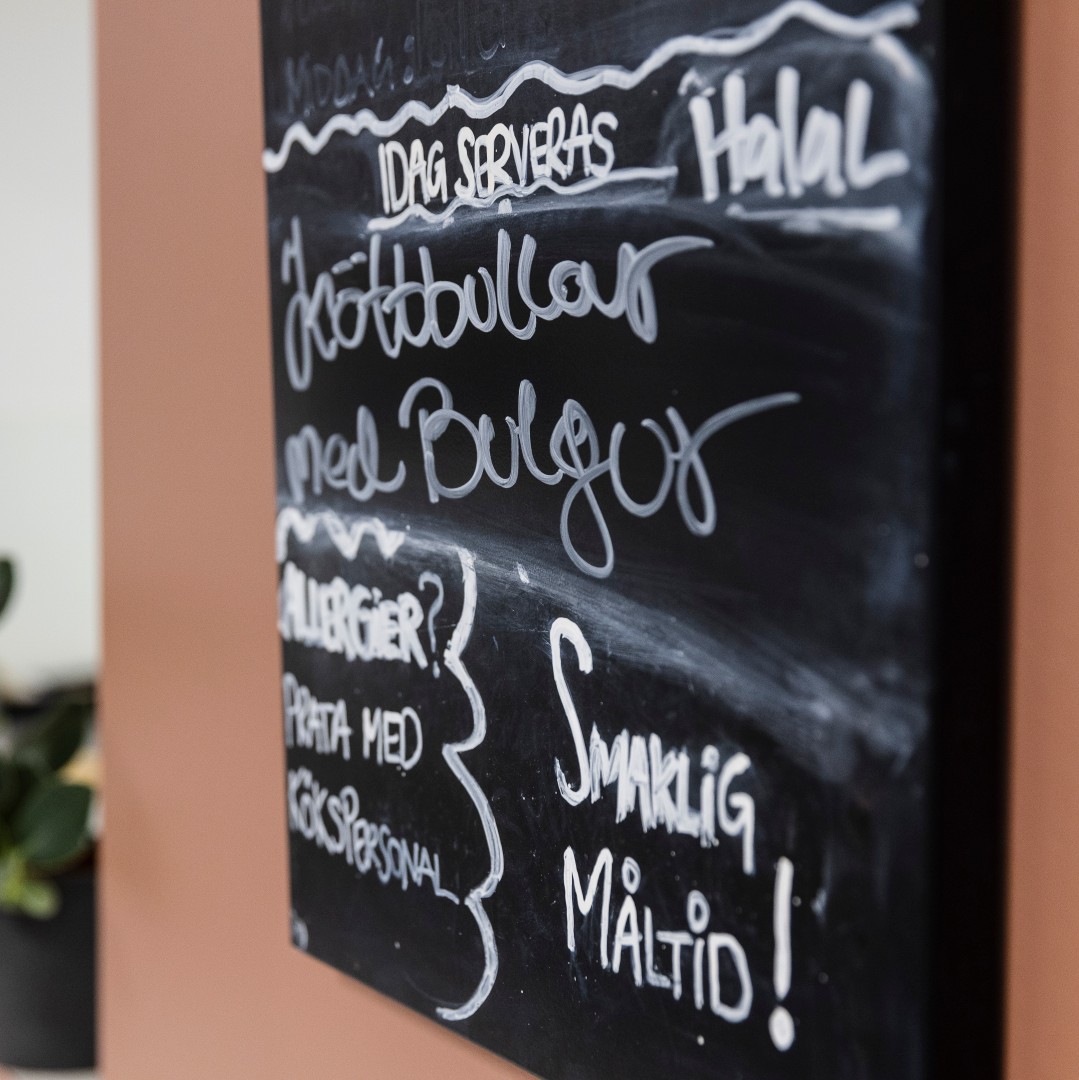 MIDDAG:
IDAG SERVERAS
Halal
Köttbullar
med Bulgur
ALLERGiER?
PRATA MED
KÖKSPERSONAL
SMAKLiG
MÅLTiD!